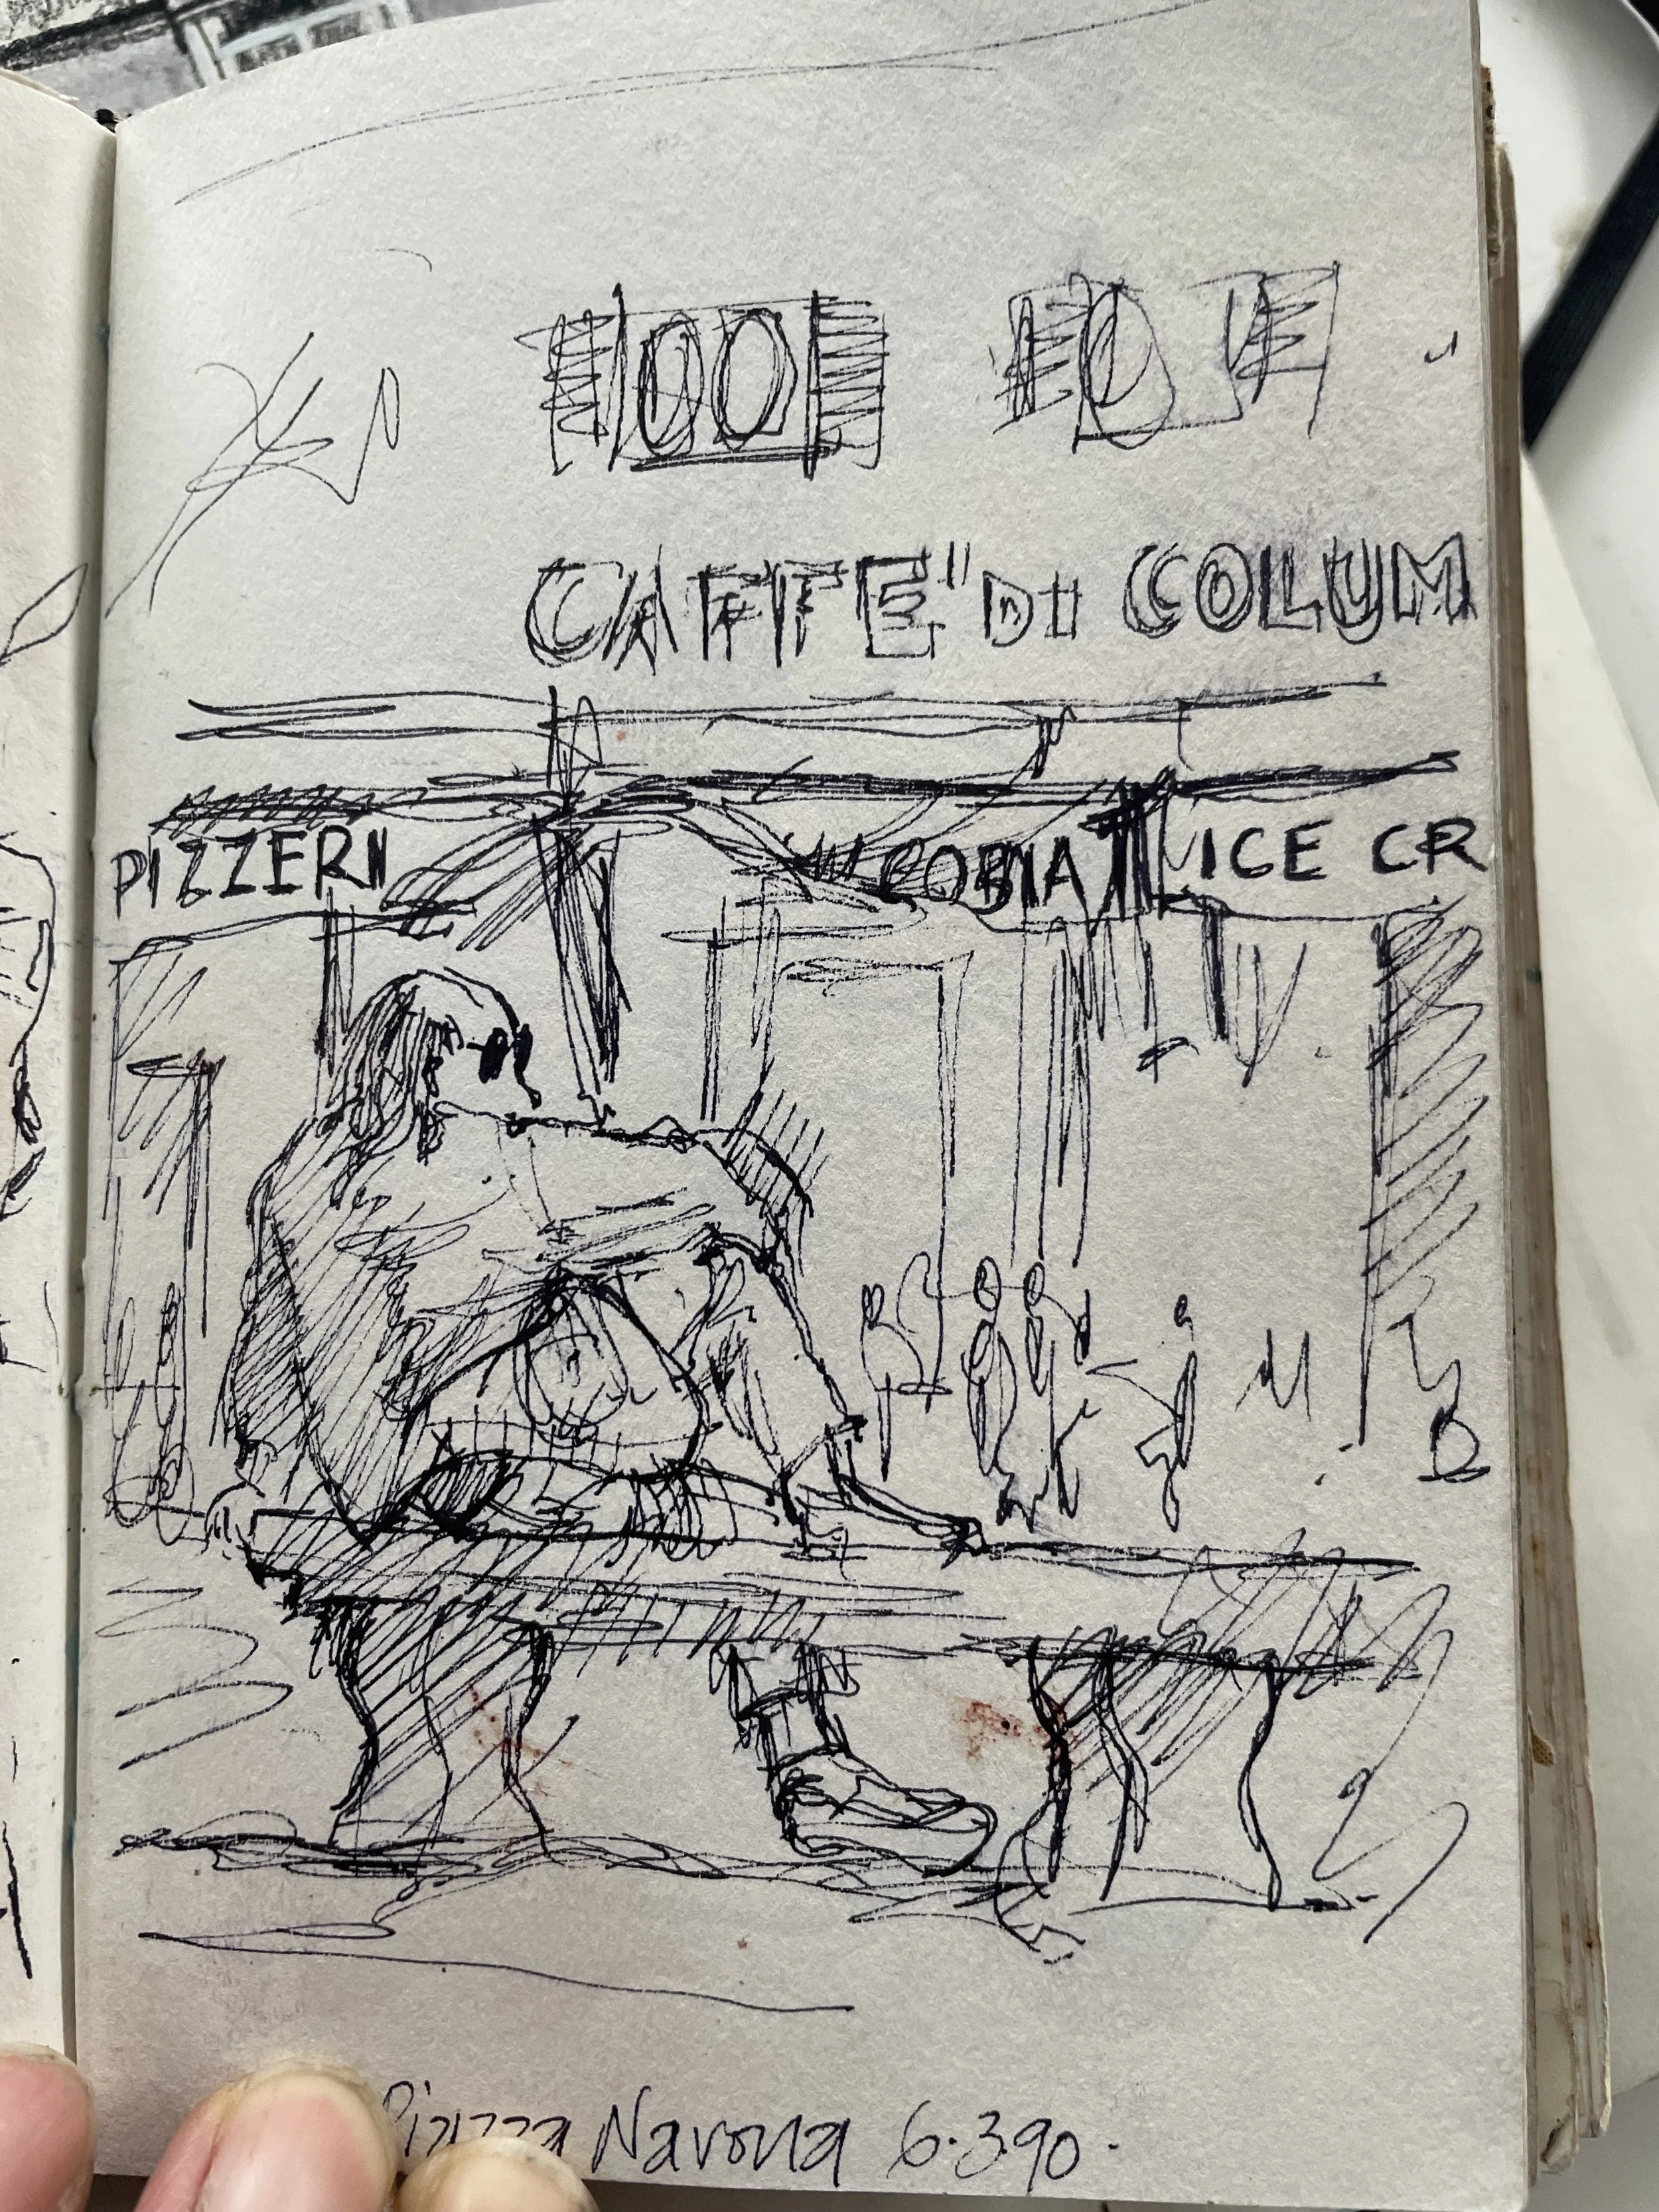 CAFFE" DI COLUM
PIZZERII COBIA ICE CR
Piazza Navona 6.3.90.